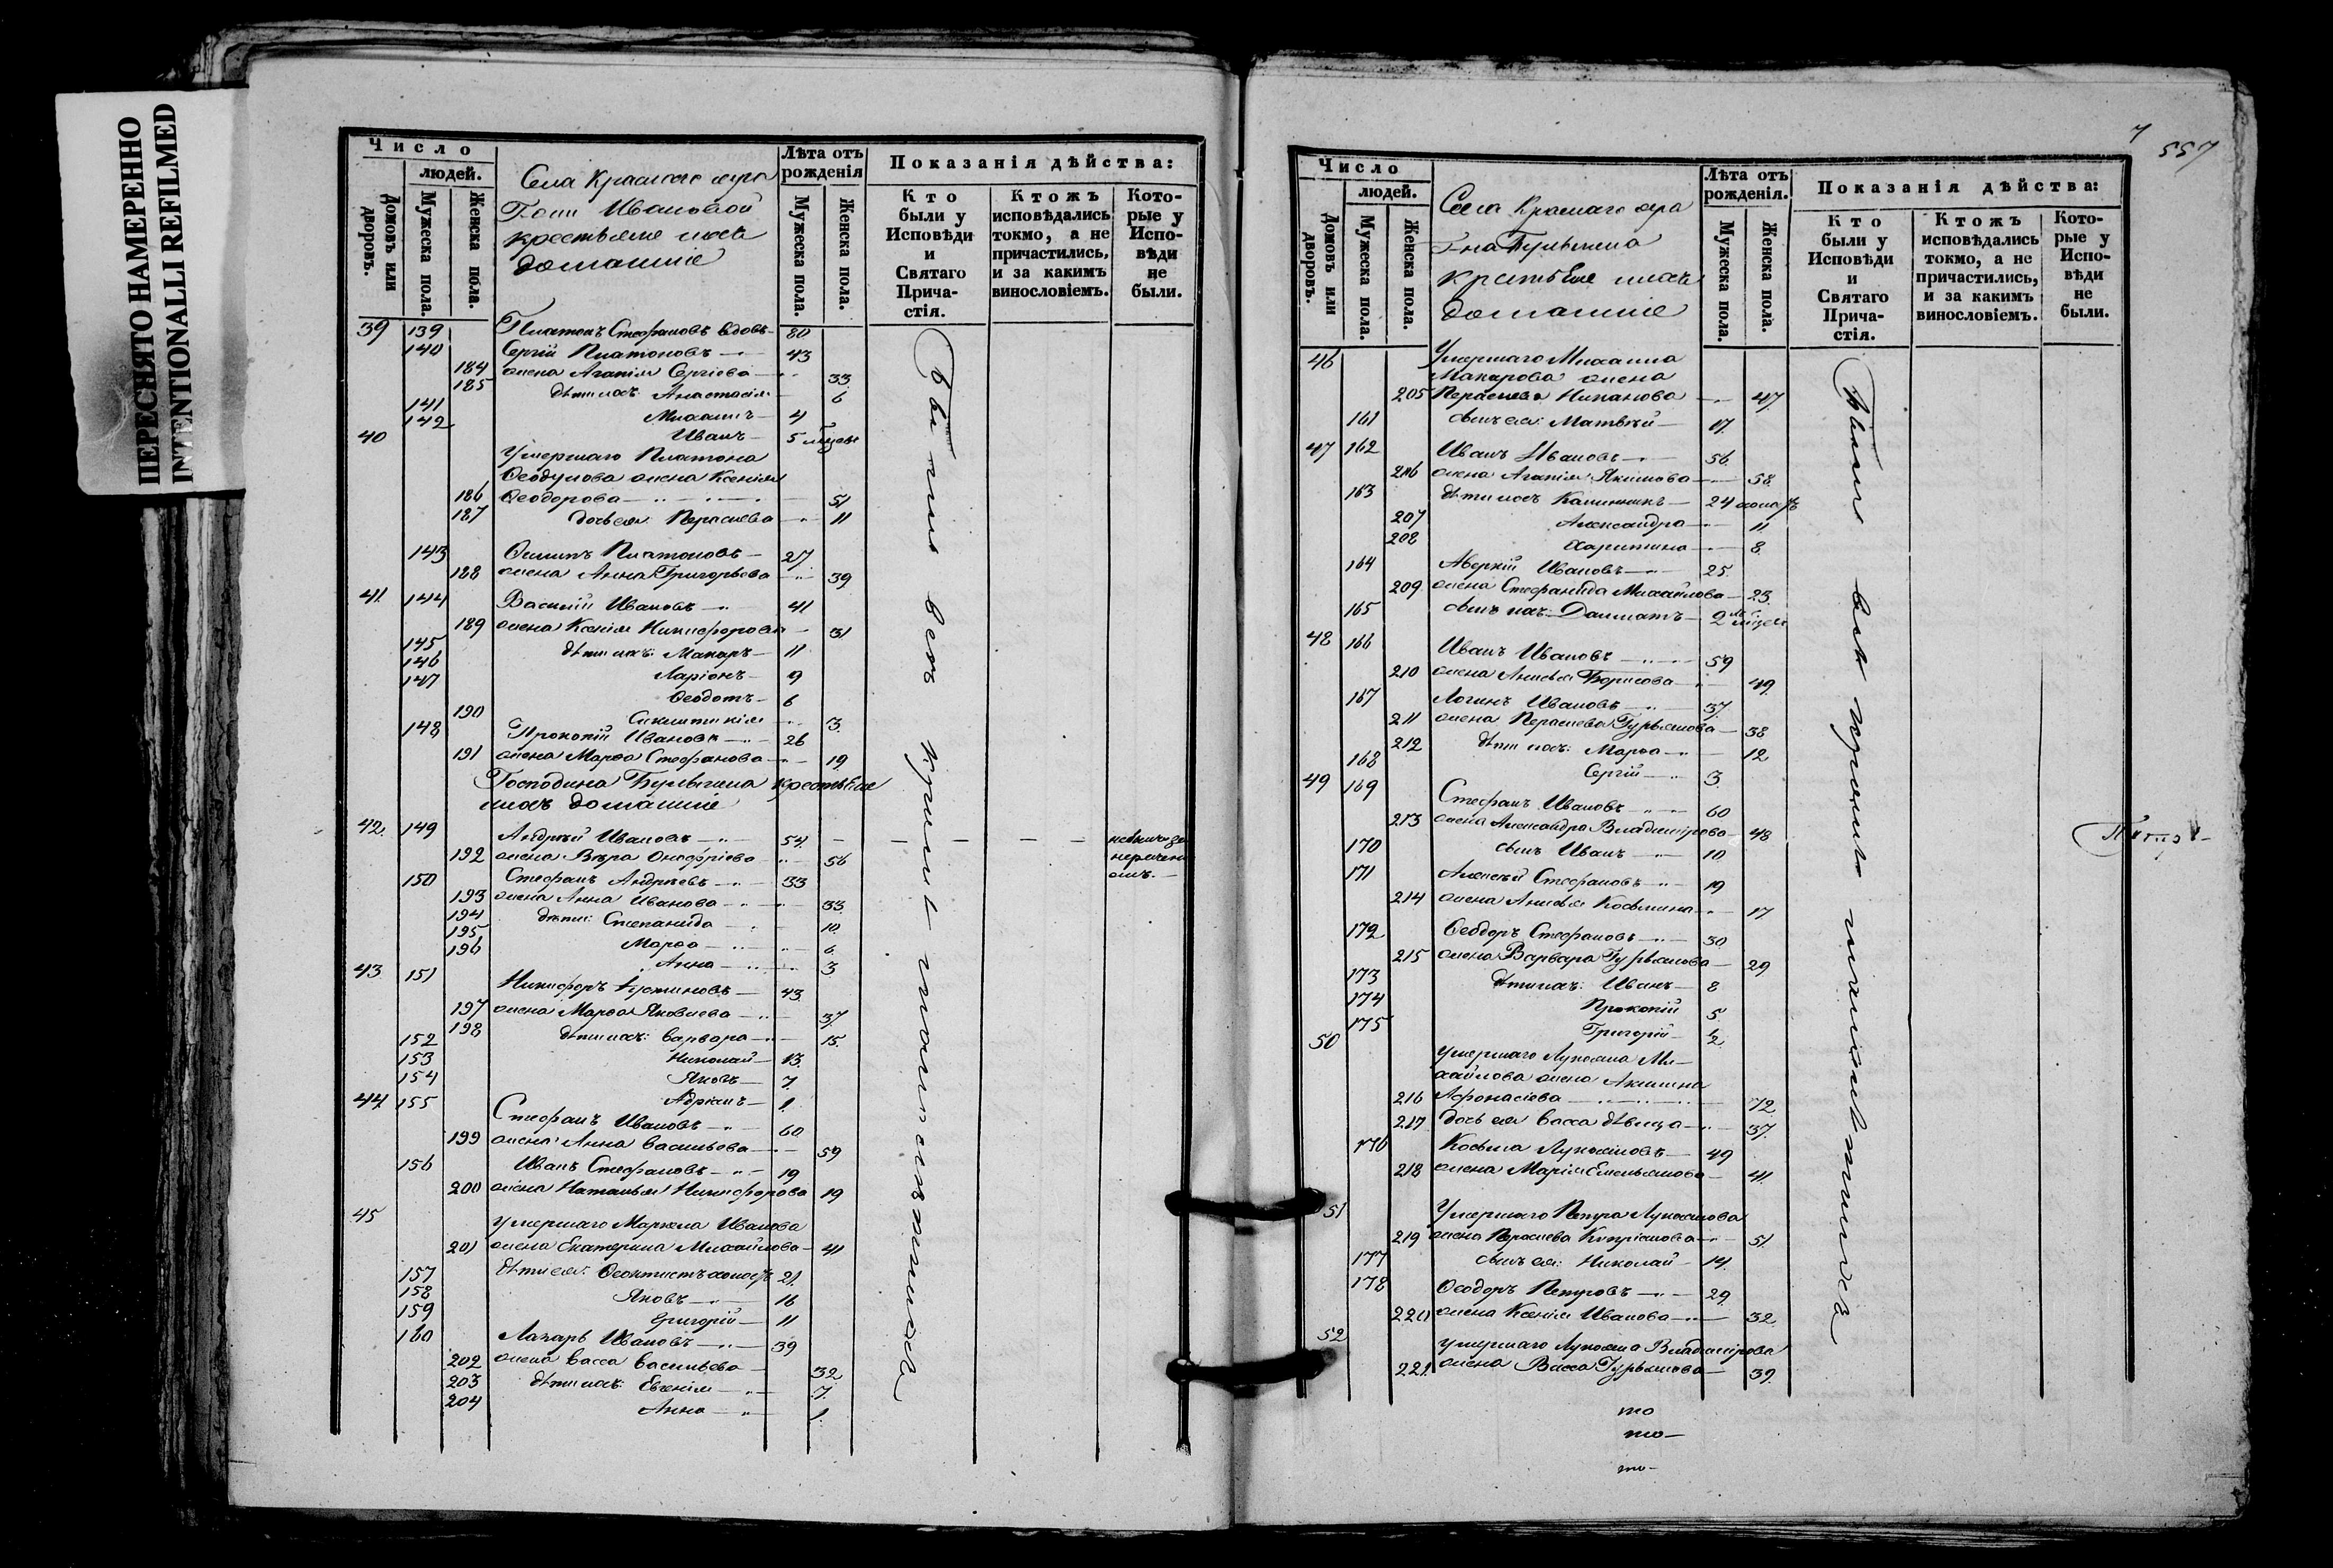 ПЕРЕСНЯТО НАМЕРЕННО
INTENTIONALLI REFILMED
Число
людей.
Домовъ или дворовъ.
Мужеска пола.
Женска пола.
Села Краснаго
Ивановой
крестьяне
домашніе
Лѣта отъ рожденія
Мужеска пола.
Женска пола.
Показанія дѣйства:
Кто были у Исповѣди и Святаго Прича-стія.
Ктожъ исповѣдались токмо, а не причастились, и за какимъ винословіемъ.
Кото-рые у Испо-вѣди не были.
39 139 Платонъ Стефановъ вдовъ 80
140 Сергій Платоновъ 43
184 жена Агапія Сергіева 33
185 дѣти ихъ: Анастасія 6
141 Михаилъ 4
142 Иванъ 5
40 Умершаго Платона
Ѳеодулова жена Ксенія
186 Ѳеодорова 51
187 дочь ея: Параскева 11
143 Осипъ Платоновъ 27
188 жена Анна Григорьева 39
41 144 Василій Ивановъ 41
189 жена Ксенія Никифорова 31
145 дѣти ихъ: Макаръ 11
146 Ларіонъ 9
147 Ѳеодотъ 6
190 3
148 Прокопій Ивановъ 26
191 жена Марѳа Стефанова 19
Господина Булыгина крестьяне
ихъ домашніе
42 149 Андрей Ивановъ 54
192 жена Вѣра Онофріева 56
150 Стефанъ Андреевъ 33
193 жена Анна Иванова 33
194 дѣти: Степанида 10
195 Марѳа 6
196 Анна 3
43 151 Никифоръ 43
197 жена Марѳа Яковлева 37
198 дѣти ихъ: Варвара 15
152 Николай 13
153 Яковъ 7
154 Адріанъ 1
44 155 Стефанъ Ивановъ 60
199 жена Анна Васильева 59
156 Иванъ Стефановъ 19
200 жена Наталья Никифорова 19
45 Умершаго Маркела Иванова
201 жена Екатерина Михайлова 41
157 дѣти ея: Ѳеоктистъ холостъ 21
158 Яковъ 16
159 Григорій 11
160 Лазарь Ивановъ 39
202 жена Васса Васильева 32
203 дѣти ихъ: Евгенія 7
204 Анна 1
Были всѣ
7
557
Число
людей.
Домовъ или дворовъ.
Мужеска пола.
Женска пола.
Села Краснаго
Г-на Булыгина
крестьяне ихъ
домашніе
Лѣта отъ рожденія.
Мужеска пола.
Женска пола.
Показанія дѣйства:
Кто были у Исповѣди и Святаго Прича-стія.
Ктожъ исповѣдались токмо, а не причастились, и за какимъ винословіемъ.
Кото-рые у Испо-вѣди не были.
46 Умершаго Михаила
Макарова жена
205 Параскева 47
161 сынъ ея: Матвѣй 17
47 162 Иванъ Ивановъ 56
206 жена Агапія Якимова 58
163 дѣти ихъ Калинникъ 24 холостъ
207 Александра 11
208 Харитина 8
164 Аверкій Ивановъ 25
209 жена Стефанида Михайлова 23
165 сынъ ихъ: Далматъ 2
48 166 Иванъ Ивановъ 59
210 жена Анисья Борисова 49
167 Логинъ Ивановъ 37
211 жена Параскева Гурьянова 38
212 дѣти ихъ: Марѳа 12
168 Сергій 3
49 169 Стефанъ Ивановъ 60
213 жена Александра Владимірова 48
170 сынъ Иванъ 10
171 Алексѣй Стефановъ 19
214 жена Анисья Косьмина 17
172 Ѳеодоръ Стефановъ 30
215 жена Варвара Гурьянова 29
173 дѣти ихъ: Иванъ 8
174 Прокопій 5
175 Григорій
50 Умершаго Лукіана Ми-
хайлова жена Акилина
216 Афонасіева 72
217 дочь ея Васса дѣвица 37
176 Косьма Лукіановъ 49
218 жена Марія Емельянова 41
51 Умершаго Петра Лукіанова
219 жена Параскева Кипріанова 51
177 сынъ ея: Николай 14
178 Ѳеодоръ Петровъ 29
220 жена Ксенія Иванова 32
52 Умершаго Лукіана Владимірова
221 жена Васса Гурьянова 39
Были всѣ
то
то
то